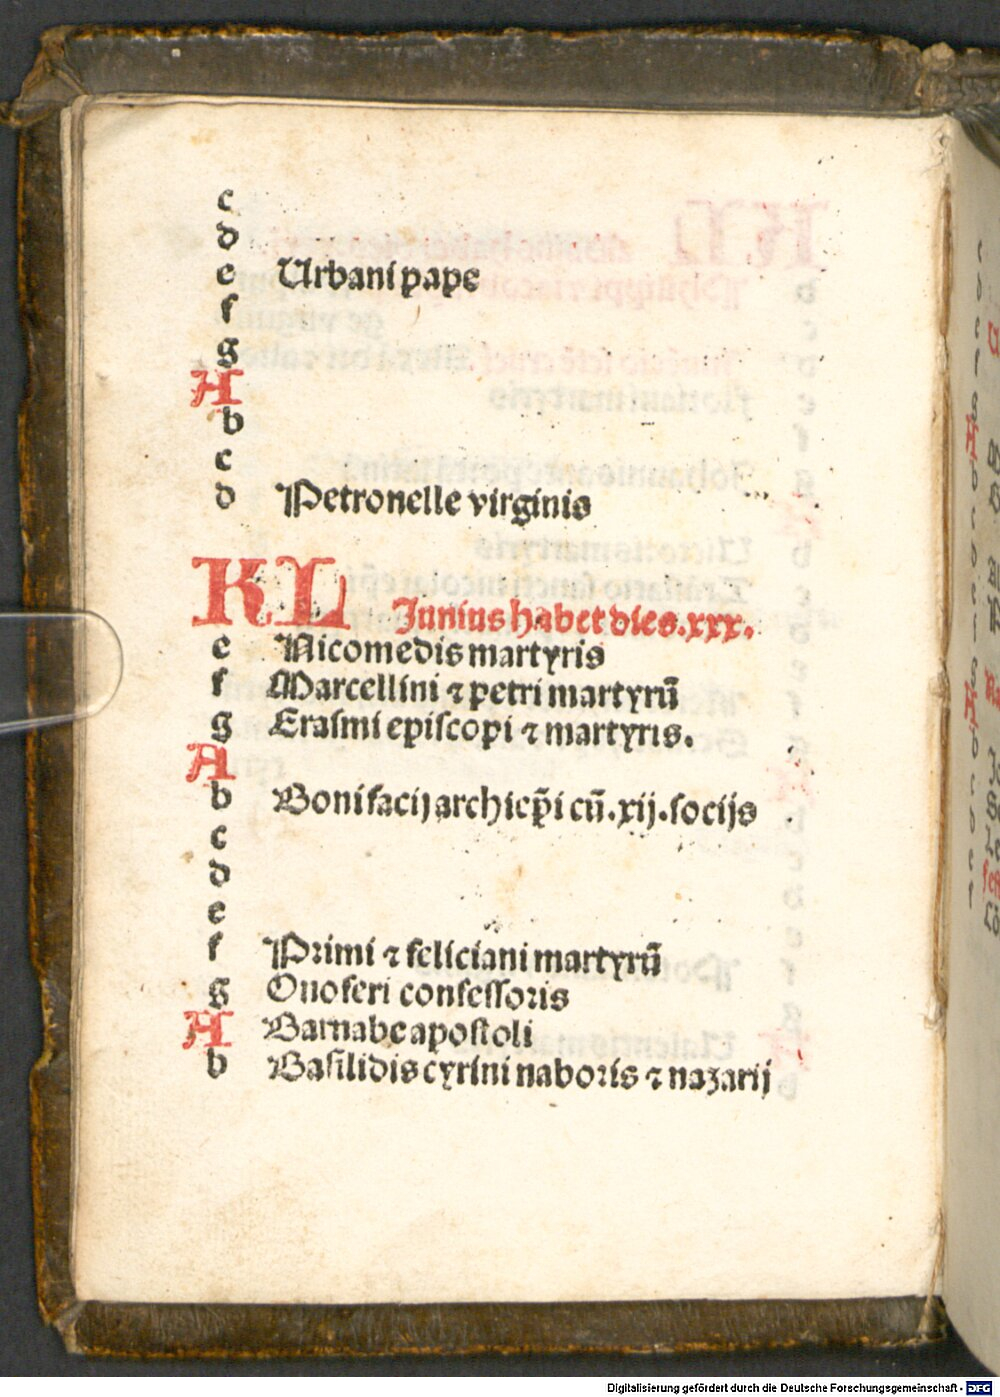 c
d
e Urbani pape
f
g
A
b
c
d Petronelle virginis
KL Junius habet dies.xxx.
e Nicomedis martyris
f Marcellini ⁊ petri martyrū
g Erasmi episcopi ⁊ martyris.
A
b Bonifacij archiep̄i cū.xij.socijs
c
d
e
f Primi ⁊ feliciani martyrū
g Onoferi confessoris
A Barnabe apostoli
b Basilidis cyrini naboris ⁊ nazarij
Digitalisierung gefördert durch die Deutsche Forschungsgemeinschaft - DFG